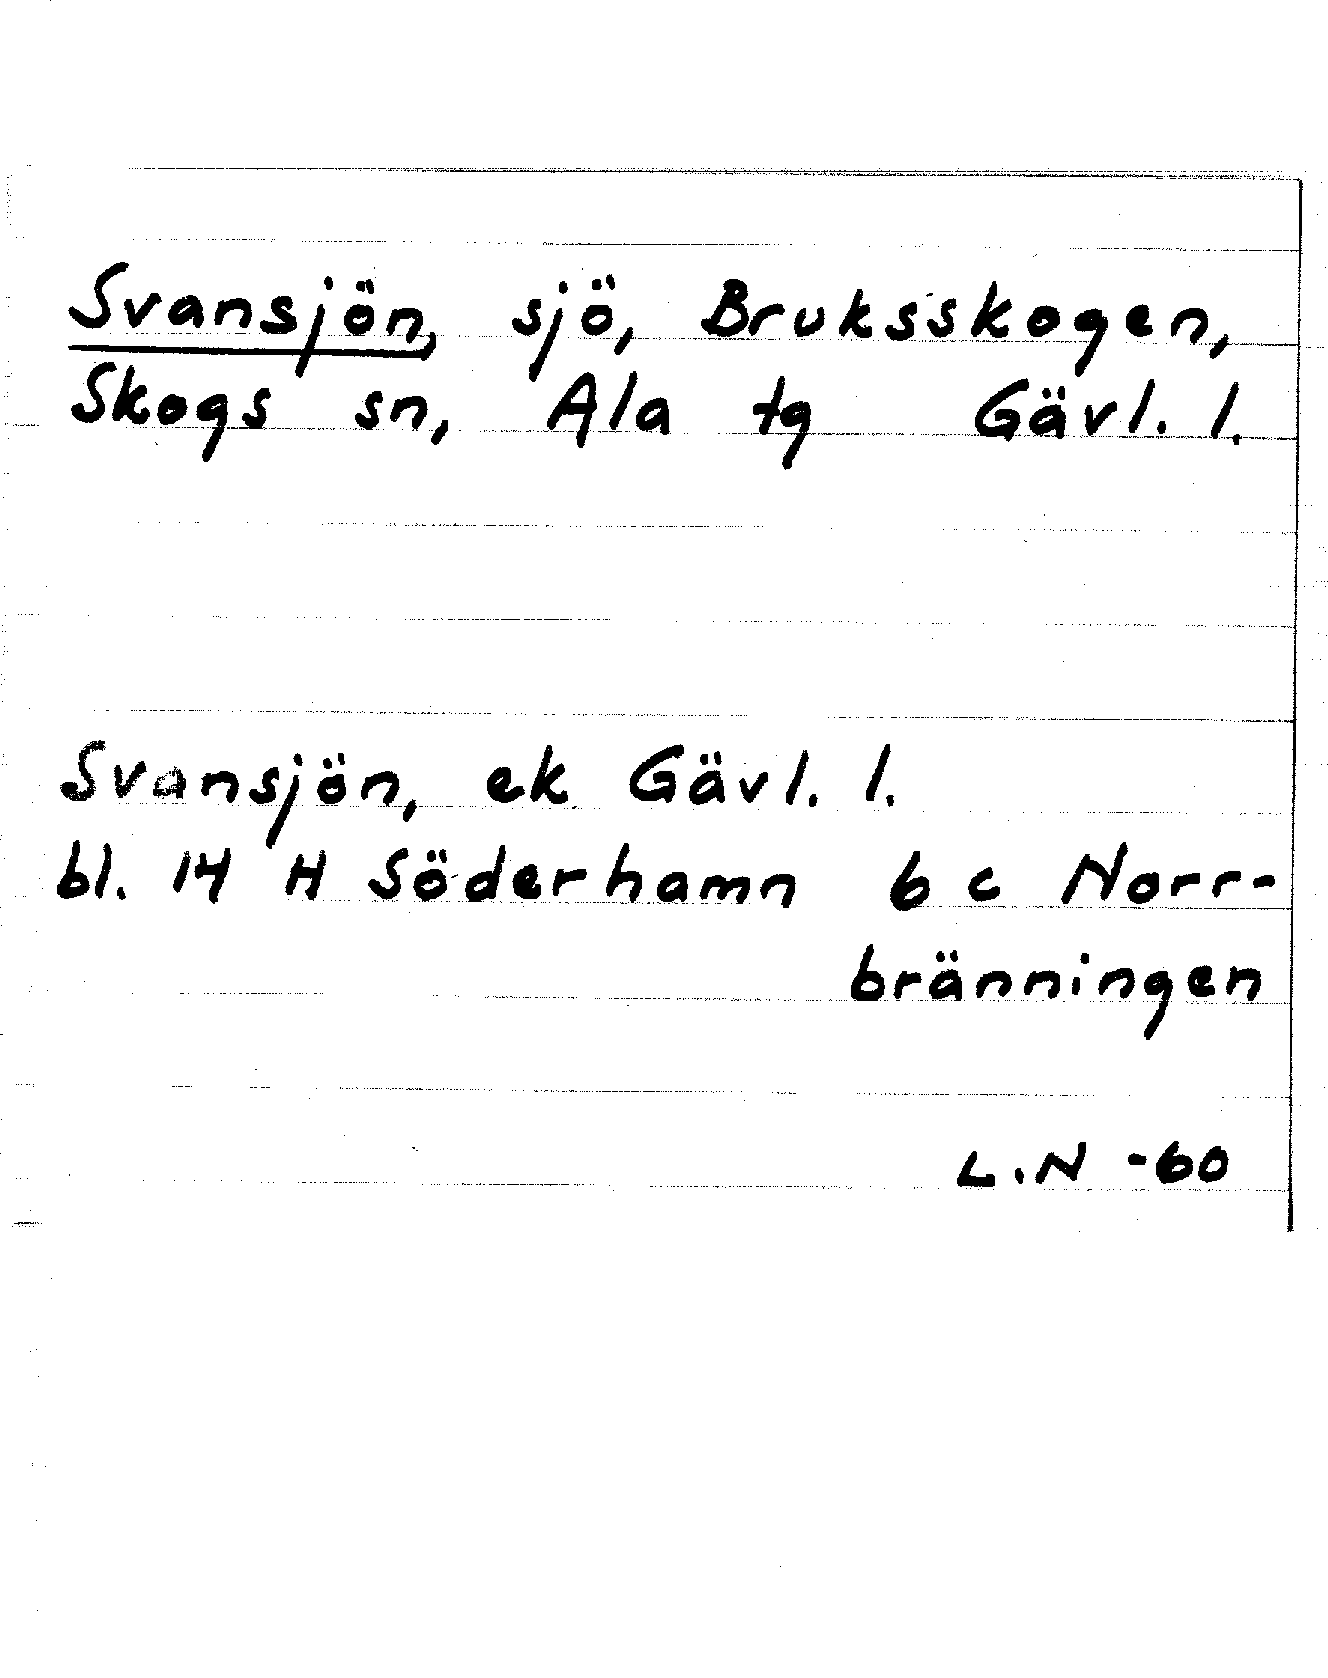 Svansjön, sjö, Bruksskogen,
Skogs sn, Ala tg Gävl. l.
Svansjön, ek Gävl. l.
bl. 14 H Söderhamn 6 c Norr-
bränningen
L.N -60